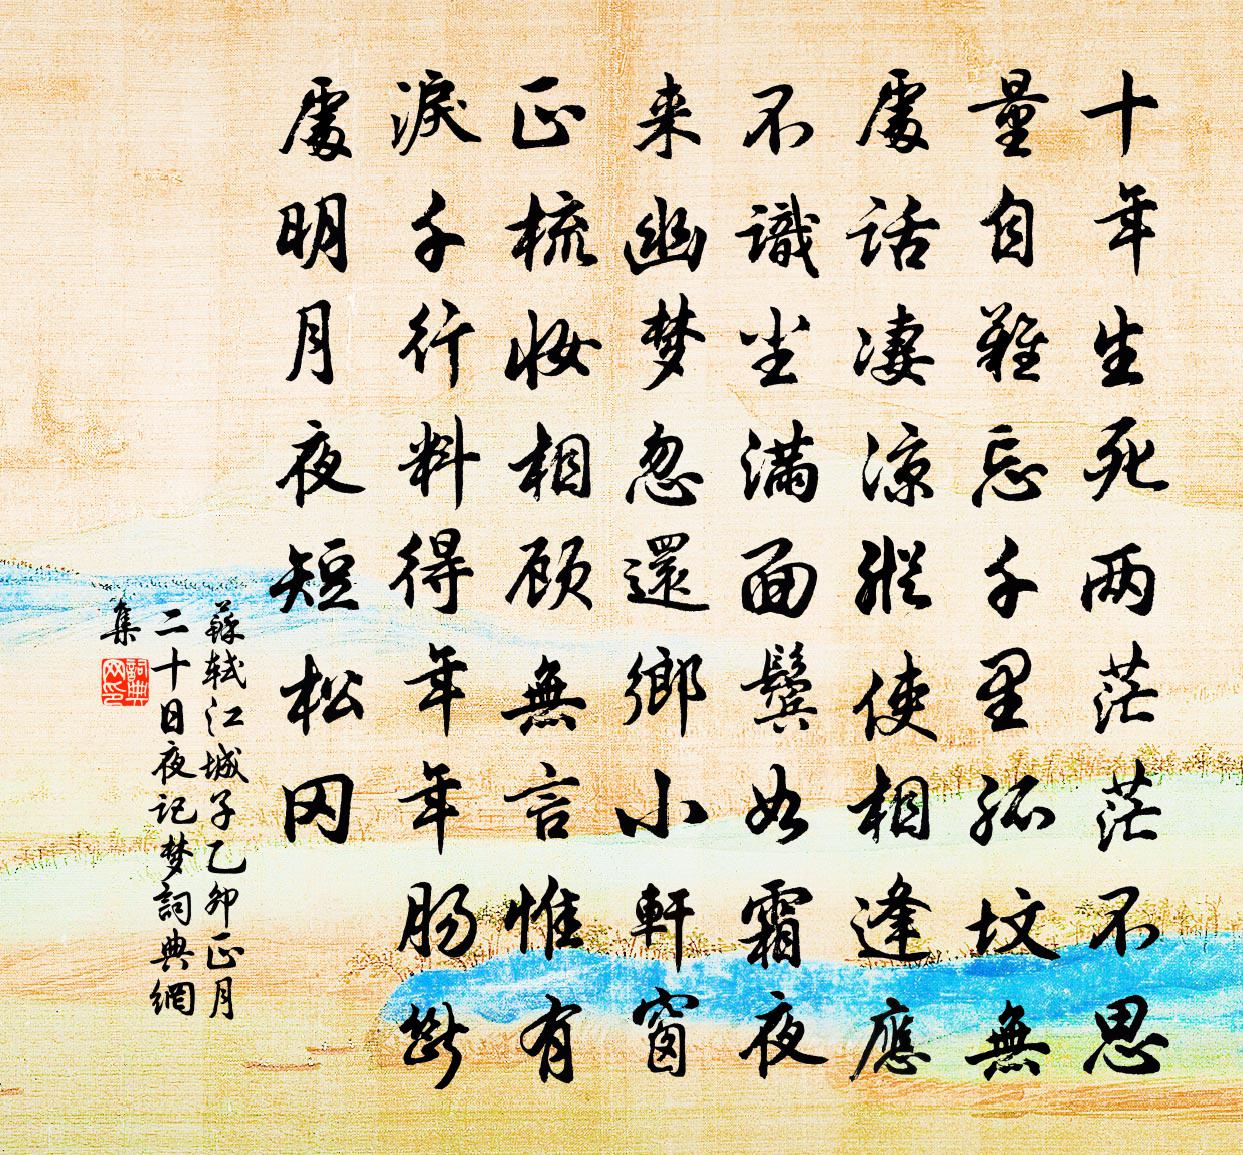 十年生死两茫茫不思
量自難忘千里孤坟無
處話淒涼縱使相逢應
不識尘满面鬓如霜夜
来幽梦忽還鄉小軒窗
正梳妆相顾無言惟有
淚千行料得年年肠斷
處明月夜短松冈
蘇轼江城子乙卯正月
二十日夜记梦詞典網
集
詞典网印